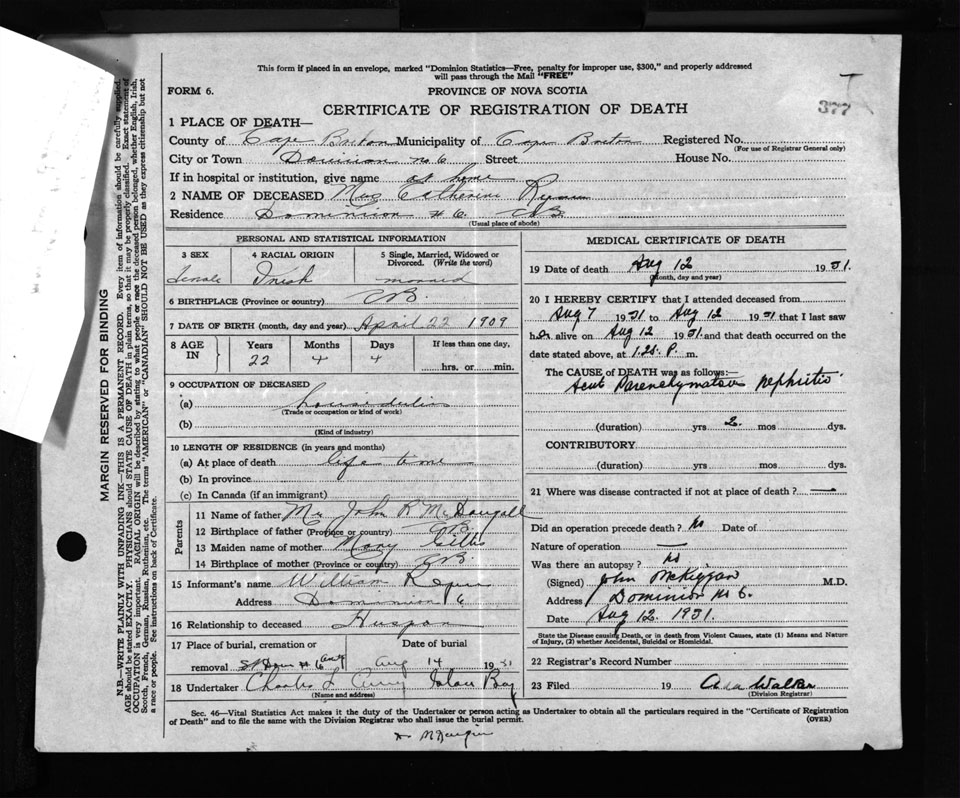 This form if placed in an envelope, marked "Dominion Statistics—Free, penalty for improper use, $300," and properly addressed
will pass through the Mail "FREE"
FORM 6. PROVINCE OF NOVA SCOTIA
377
CERTIFICATE OF REGISTRATION OF DEATH
1 PLACE OF DEATH—
County of Cape Breton Municipality of Cape Breton Registered No.
(For use of Registrar General only)
City or Town Dominion No 6 Street House No.
If in hospital or institution, give name at home
2 NAME OF DECEASED Mrs Catherine Ryan
Residence Dominion # 6. C.B.
(Usual place of abode)
PERSONAL AND STATISTICAL INFORMATION
3 SEX 4 RACIAL ORIGIN 5 Single, Married, Widowed or
Divorced. (Write the word)
female Irish married
6 BIRTHPLACE (Province or country) C.B.
7 DATE OF BIRTH (month, day and year) April 22 1909
8 AGE IN Years Months Days If less than one day,
22 4 4 hrs. or min.
9 OCCUPATION OF DECEASED
(a) house duties
(Trade or occupation or kind of work)
(b)
(Kind of industry)
10 LENGTH OF RESIDENCE (in years and months)
(a) At place of death life time
(b) In province
(c) In Canada (if an immigrant)
Parents
11 Name of father Mr John R McDougall
12 Birthplace of father (Province or country) C.B.
13 Maiden name of mother Mary Gillis
14 Birthplace of mother (Province or country) C.B.
15 Informant's name William Ryan
Address Dominion 6
16 Relationship to deceased Huspan
17 Place of burial, cremation or Date of burial
removal # 6 Aug 14 1931
18 Undertaker Charles L Curry Glace Bay
(Name and address)
MEDICAL CERTIFICATE OF DEATH
19 Date of death Aug 12 1931.
(Month, day and year)
20 I HEREBY CERTIFY that I attended deceased from
Aug 7 1931 to Aug 12 1931 that I last saw
her alive on Aug 12 1931. and that death occurred on the
date stated above, at 1.25. P. m.
The CAUSE of DEATH was as follows:—
Acut Parenchymatous nephritis
(duration) yrs 2. mos dys.
CONTRIBUTORY
(duration) yrs. mos. dys.
21 Where was disease contracted if not at place of death? —
Did an operation precede death? No Date of
Nature of operation —
Was there an autopsy? No
(Signed) John McKiggan M.D.
Address Dominion No 6.
Date Aug 12. 1931.
State the Disease causing Death, or in death from Violent Causes, state (1) Means and Nature
of Injury, (2) whether Accidental, Suicidal or Homicidal.
22 Registrar's Record Number
23 Filed 19 Ada Walker
(Division Registrar)
Sec. 46—Vital Statistics Act makes it the duty of the Undertaker or person acting as Undertaker to obtain all the particulars required in the "Certificate of Registration
of Death" and to file the same with the Division Registrar who shall issue the burial permit. (OVER)
MARGIN RESERVED FOR BINDING
N.B.—WRITE PLAINLY WITH UNFADING INK—THIS IS A PERMANENT RECORD. Every item of information should be carefully supplied.
AGE should be stated EXACTLY. PHYSICIANS should STATE CAUSE OF DEATH in plain terms, so that it may be properly classified. Exact statement of
OCCUPATION is very important. RACIAL ORIGIN will be described by stating to what people or race the deceased person belonged, whether English, Irish,
Scotch, French, German, Russian, Ruthenian, etc. The terms "AMERICAN" or "CANADIAN" SHOULD NOT BE USED as they express citizenship but not
a race or people. See instructions on back of Certificate.